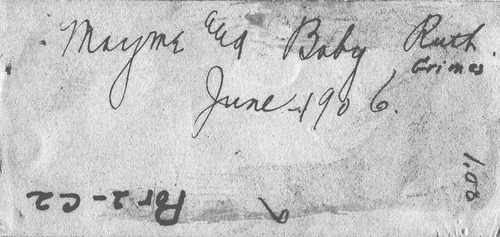 Mayme and Baby Ruth
Grimes
June - 1906.
1.00
Por 2 - C2